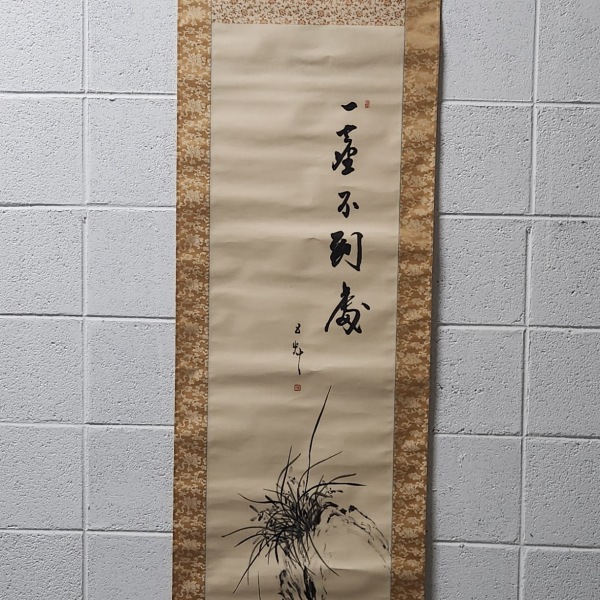 一塵不到處